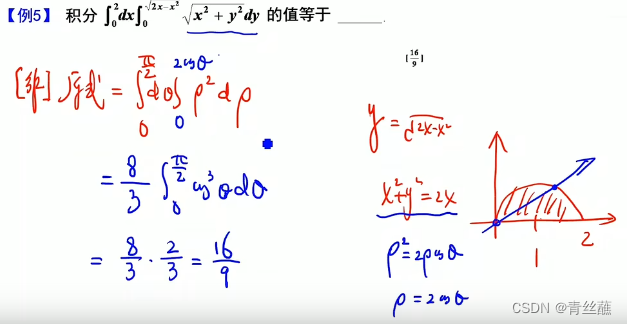 【例5】 积分 ∫₀² dx ∫₀^√(2x−x²) √(x² + y²) dy 的值等于 _____.
[16/9]
[解] 原式 = ∫₀^(π/2) dθ ∫₀^(2cosθ) ρ² dρ
= 8/3 ∫₀^(π/2) cos³θ dθ
= 8/3 · 2/3 = 16/9
y = √(2x−x²)
x²+y² = 2x
ρ² = 2ρcosθ
ρ = 2cosθ
1 2
CSDN @青丝蘸